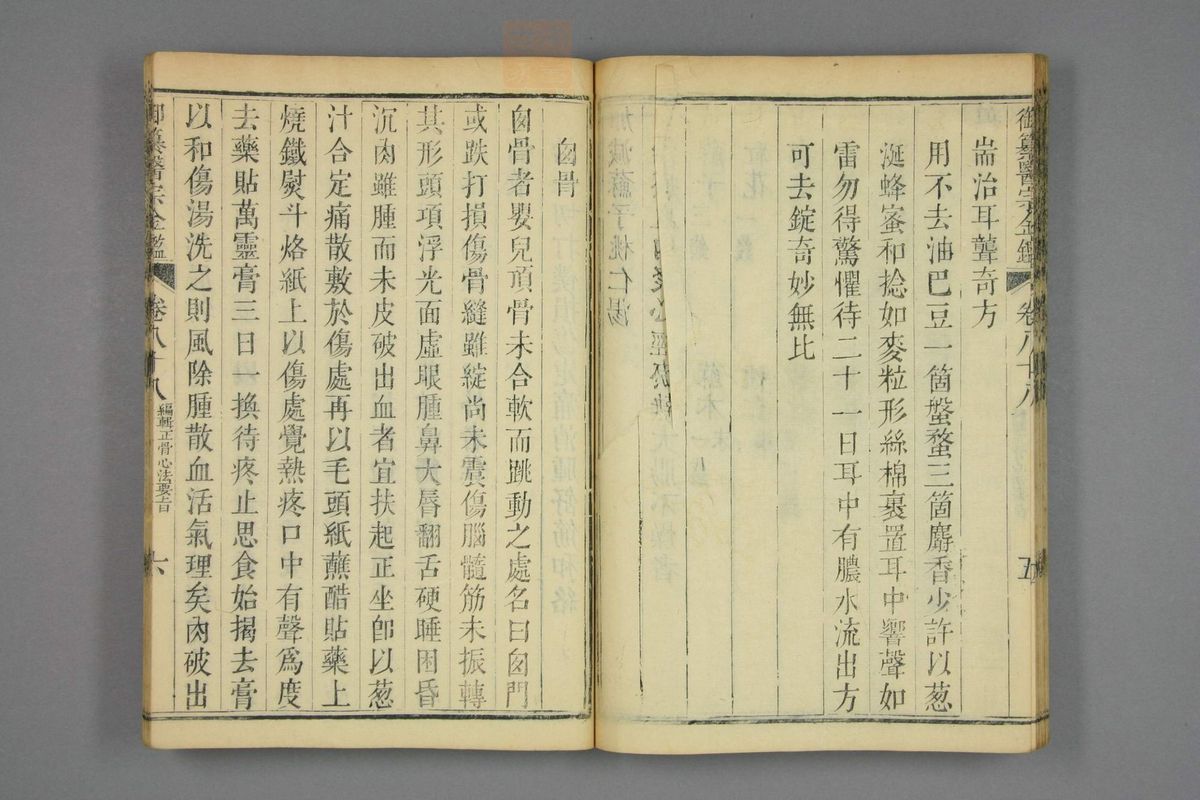 御纂醫宗金鑑 卷八十八 五
耑治耳聾奇方
用不去油巴豆一箇螌蝥三箇麝香少許以葱
涎蜂蜜和捻如麥粒形絲棉裹置耳中響聲如
雷勿得驚懼待二十一日耳中有膿水流出方
可去錠奇妙無比
囟骨
囟骨者嬰兒頂骨未合軟而跳動之處名曰囟門
或跌打損傷骨縫雖綻尚未震傷腦髓筋未振轉
其形頭項浮光面虛眼腫鼻大唇翻舌硬睡困昏
沉肉雖腫而未皮破出血者宜扶起正坐卽以葱
汁合定痛散敷於傷處再以毛頭紙蘸醋貼藥上
燒鐵熨斗烙紙上以傷處覺熱疼口中有聲爲度
去藥貼萬靈膏三日一換待疼止思食始揭去膏
以和傷湯洗之則風除腫散血活氣理矣肉破出
御纂醫宗金鑑 卷八十八 編輯正骨心法要旨 六